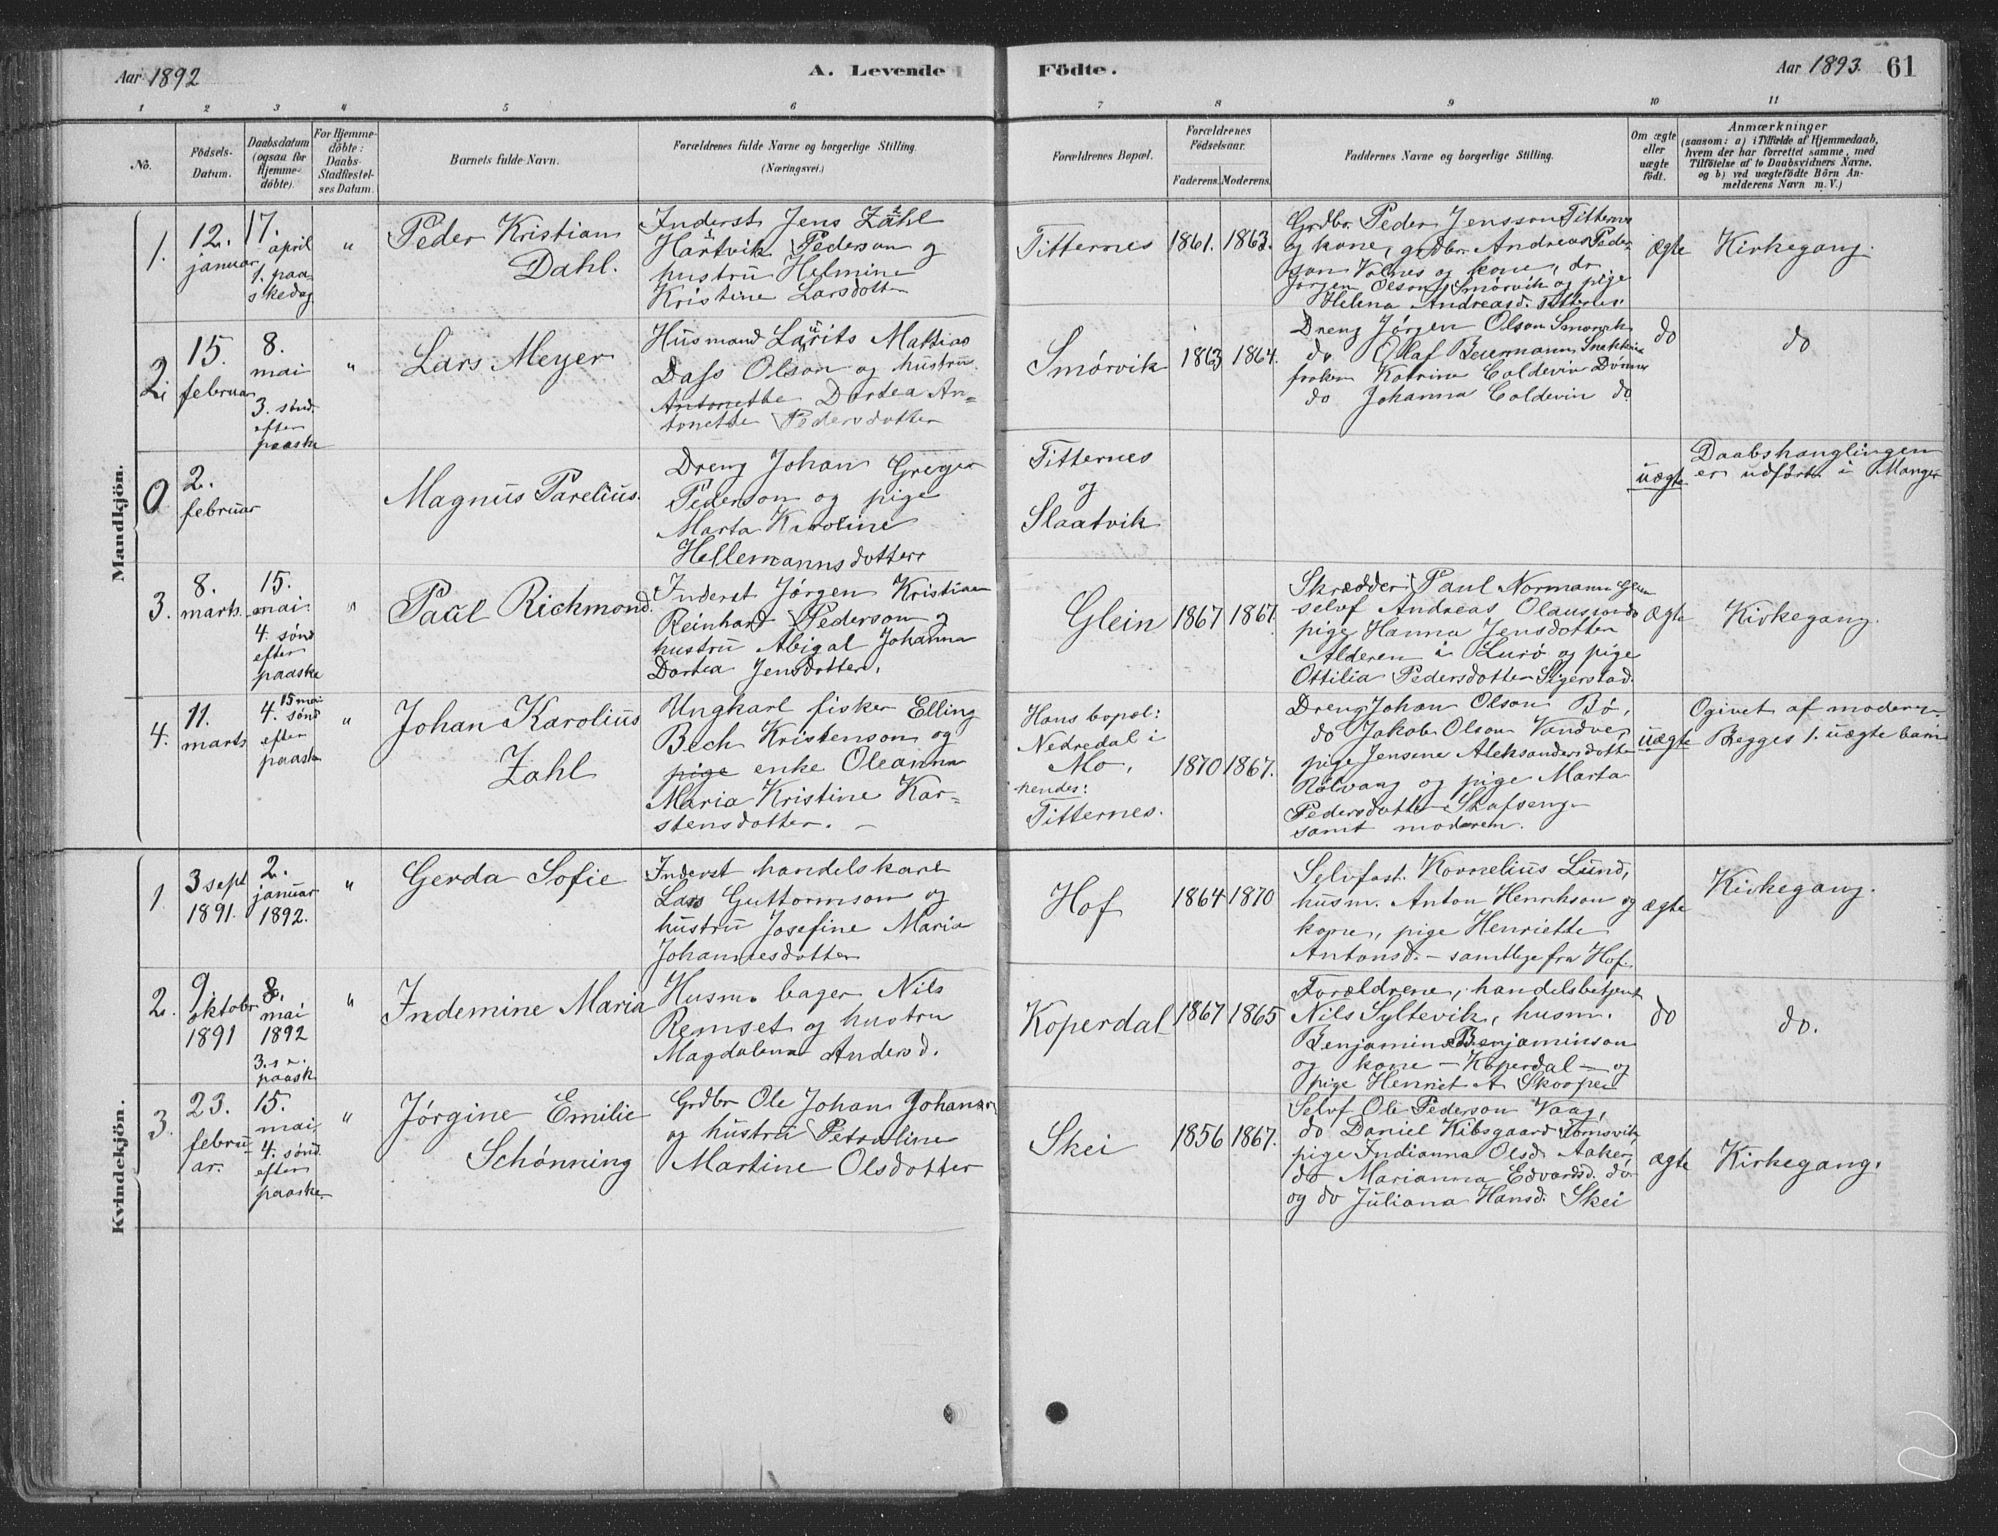 Aar 1892
A. Levende
Födte.
Aar 1893.
61
1 2 3 4 5 6 7 8 9 10 11
No.
Födsels-
Datum.
Daabsdatum
(ogsaa for
Hjemme-
döbte).
For Hjemme-
döbte:
Daabs-
Stadfæstel-
ses Datum.
Barnets fulde Navn.
Forældrenes fulde Navne og borgerlige Stilling.
(Næringsvei.)
Forældrenes Bopæl.
Forældrenes
Födselsaar.
Faderens. Moderens.
Faddernes Navne og borgerlige Stilling.
Om ægte
eller
uægte
födt.
Anmærkninger
(saasom: a) i Tilfælde af Hjemmedaab,
hvem der har forrettet samme, med
Tilföielse af to Daabsvidners Navne,
og b) ved uægtefödte Börn An-
melderens Navn m. V.)
Mandkjön.
1.
12.
januar
17.
april
1. paa-
skedag
"
Peder Kristian
Dahl.
Inderst Jens Zahl
Hartvik Pederson og
hustru Helmine
Kristine Larsdotter
Titternes
1861. 1863.
Grdbr. Peder Jensson Titternes
og kone, grdbr. Andreas Peder-
son Valnes og kone, dr.
Jørgen Olson Smørvik og pige
Helena Andreasd. Titternes.
ægte
Kirkegang.
2.
15.
februar
8.
mai
3. sønd.
efter
paaske
"
Lars Meyer
Husmand Laurits Mattias
Dass Olson og hustru
Antonette Dortea An-
tonette Pedersdotter
Smørvik
1863 1864.
Dreng Jørgen Olson Smørvik
do Olaf
frøken Katrine Coldevin Dønnes
do Johanna Coldevin do
do
do
0
2.
februar
Magnus Parelius.
Dreng Johan Greger
Pederson og pige
Marta Karoline
Hellemannsdotter
Titternes
og
Slaatvik
uægte
Daabshanglingen
er udført i Manger
3.
8.
marts.
15.
mai
4. sønd
efter
paaske
"
Paul Richmond.
Inderst Jørgen Kristian
Reinhart Pederson og
hustru Abigal Johanna
Dortea Jensdotter.
Glein
1867 1867.
Skrædder Paul Normann Glein
selvf Andreas Olausson do
pige Hanna Jensdotter
Alderen i Lurø og pige
Ottilia Pedersdotter Sigerstad.
ægte
Kirkegang.
4.
11.
marts
15 mai
4. sønd
efter
paaske
"
Johan Karolius
Zahl
Ungkarl fisker Elling
Bech Kristenson og
pige enke Oleanna
Maria Kristine Kar-
stensdotter. -
Hans bopæl:
Nedredal i
Mo,
hendes:
Titternes.
1870 1867.
Dreng Johan Olson Bø,
do Jakob Olson Vandve,
pige Jensine Aleksandersdotter
Rølvaag og pige Marta
Pedersdotter Skafseng
samt moderen.
uægte
Ogivet af moderen
Begges 1. uægte barn
Kvindekjön.
1
3 sept
1891.
2.
januar
1892.
"
Gerda Sofie
Inderst handelskarl
Lars Guttormson og
hustru Josefine Maria
Johannesdotter
Hof
1864 1870
Selvfost. Kornelius Lund,
husm. Anton Henrikson og
kone, pige Henriette
Antonsd. - samtlige fra Hof.
ægte
Kirkegang.
2.
9
oktobr
1891
8.
mai
1892
3. s e.
paask
"
Indemine Maria
Husm. bager Nils
Remset og hustru
Magdalena Andersd.
Koperdal
1867 1865
Forældrene, handelsbetjent
Nils Syltevik, husm.
Benjamin Benjaminson
og kone - Koperdal - og
pige Henriet A Skorpen
do
do.
3.
23.
febru-
ar.
15.
mai
4. sønd
efter
paaske.
"
Jørgine Emilie
Schønning
Grdbr Ole Johan Johanson
og hustru Petroline
Martine Olsdotter
Skei
1856 1867.
Selvf Ole Pederson Vaag,
do Daniel Kibsgaard
pige Indianna Olsd. Aaker,
do Marianna Edvardsd. do
og do Juliana Hansd. Skei
ægte
Kirkegang.